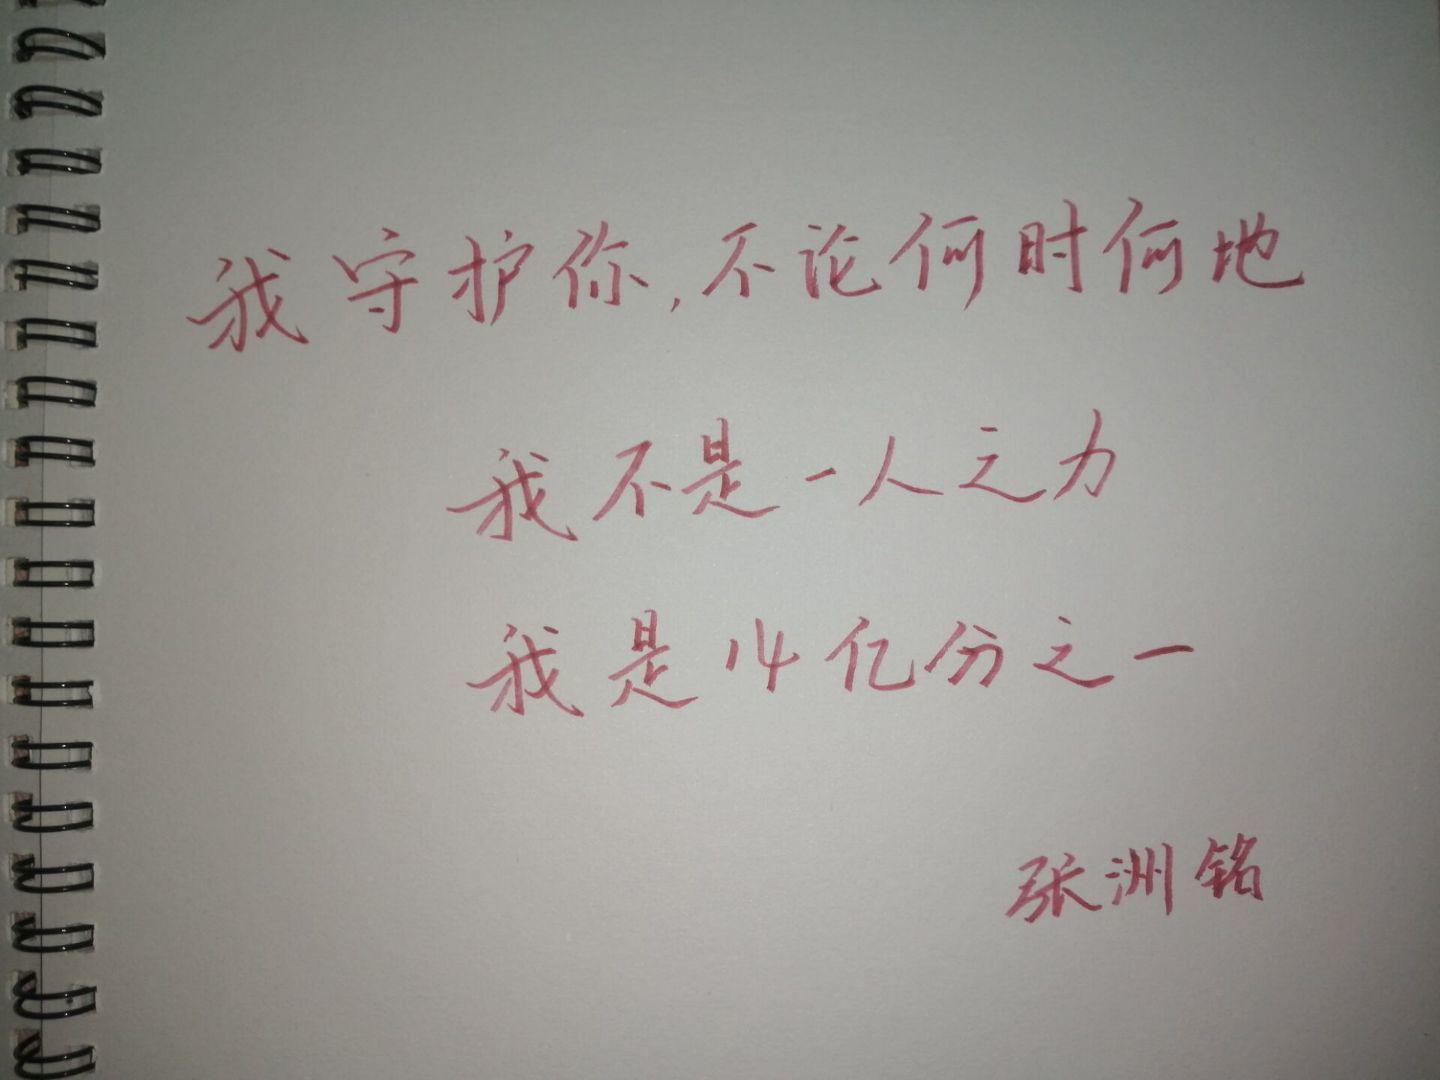 我守护你,不论何时何地
我不是一人之力
我是14亿分之一
张洲铭